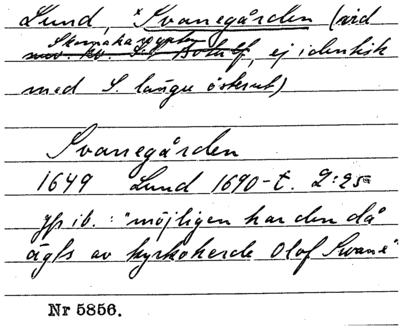 Lund, × Svanegården (vid
Skomakargyket
nuv. kv. S:t Botulf, ej identisk
med S. längre österut)
Svanegården
1649 Lund 1690-t. 2:25
yp ib.: "möjligen har den då
ägts av kyrkoherde Olof Swane"
Nr 5856.